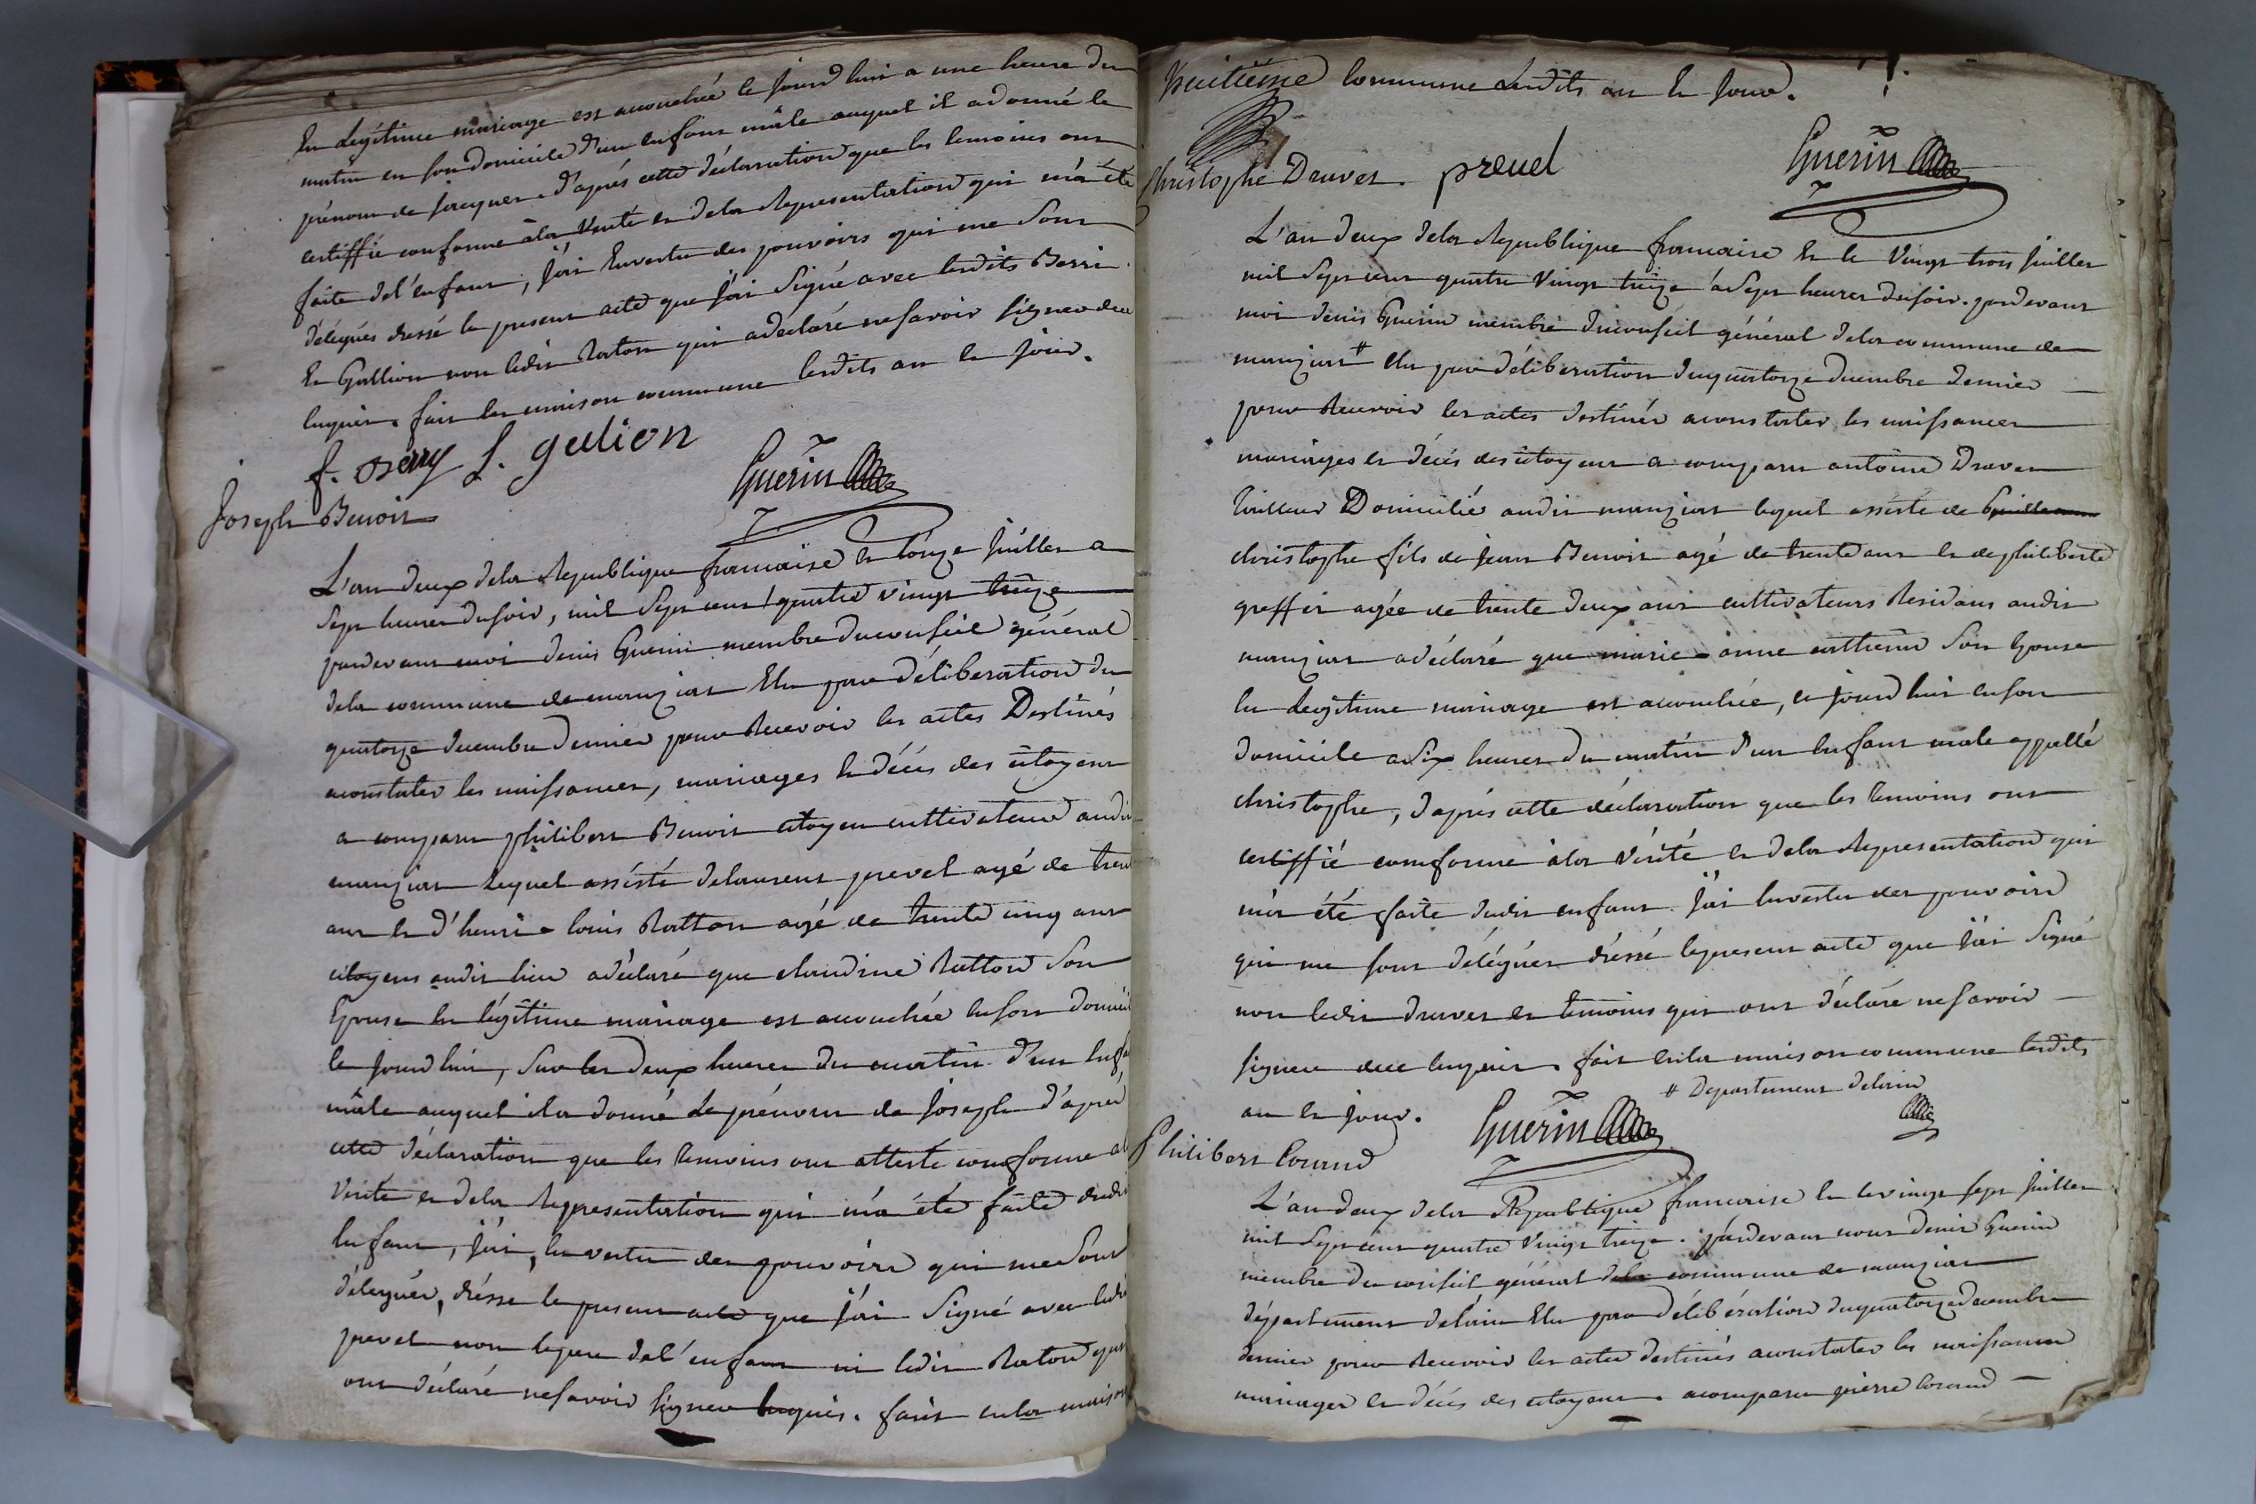 En legitime mariage est accouchée ce jourd'hui a une heure du
matin en son domicile d'un enfant mâle auquel il a donné le
prénom de jacques. D'aprés cette déclaration que les temoins ont
certiffié conforme à la verité et de la Representation qui m'a été
faite de l'enfant, j'ai Envertu des pouvoirs qui me sont
délégués dressé le present acte que j'ai signé avec lesdits Berri
Et Gallion non ledit Raton qui a déclaré ne savoir signer de ce
enquis. fait en la maison commune lesdits an et jour.
f. Berry L. galion
Guerin
Joseph Benoit
L'an deux de la Republique francaise et l'onze juillet a
Sept heures du soir, mil sept cent quatre vingt treize
pardevant moi denis Guerin membre du conseil général
de la commune de manziat Elu par délibération du
quatorze decembre dernier pour Recevoir les actes Destinés
a constater les naissances, mariages et décés des citoyens
a comparu philibert Benoit citoyen cultivateur audit
manziat lequel assisté de laurent prevel agé de trent
ans et d'henri-louis Ratton agé de trente cinq ans
citoyens audit lieu a déclaré que claudine Ratton Son
Epouse en légitime mariage est accouchée en son domicil
ce jourd'hui, Sur les deux heures du matin d'un Enfa
mâle auquel il a donné le prénom de Joseph d'aprés
cette déclaration que les temoins ont attesté conforme a la
Verité et de la Representation qui m'a été faite dudit
Enfant, j'ai, en vertu des pouvoirs qui me Sont
délégués, dressé le present acte que j'ai Signé avec ledit
prevel non le pere de l'enfant ni ledit Raton qui
ont déclaré ne savoir Signer Enquis. fait en la maison
commune lesdits an et jour.
Christophe Druver. prevel
Guerin
L'an deux de la Republique francaise Et le Vingt trois juillet
mil Sept cent quatre Vingt treize à Sept heures du soir. pardevant
moi denis Guerin membre du conseil général de la commune de
manziat # Elu par délibération du quatorze decembre dernier
pour Recevoir les actes destinés a constater les naissances
mariages et décés des citoyens a comparu antoine Druver
tailleur Domicilié audit manziat lequel assisté de
christophe fils de jean Benoit agé de trente ans et de philiberte
greffet agée de trente deux ans cultivateurs Residans audit
manziat a déclaré que marie-anne catherin Son Epouse
En legitime mariage est accouchée, ce jourd'hui en son
domicile a Six heures du matin d'un Enfant male appellé
christophe, d'aprés cette déclaration que les temoins ont
certiffié conforme à la Vérité et de la Representation qui
m'a été faite dudit enfant. j'ai Envertu des pouvoirs
qui me sont délégués dréssé le present acte que j'ai Signé
non ledit druver et temoins qui ont déclaré ne savoir
signer de ce enquis. fait en la maison commune lesdits
an et jour.
# Departement de l'ain
Guerin
Philibert Corand
L'an deux de la République francaise Et le vingt sept juillet
mil Sept cent quatre Vingt treize. pardevant nous denis Guerin
membre du conseil général de la commune de manziat
département de l'ain Elu par délibération du quatorze decembre
dernier pour Recevoir les actes destinés a constater les naissances
mariages et décés des citoyens. a comparu pierre Corand